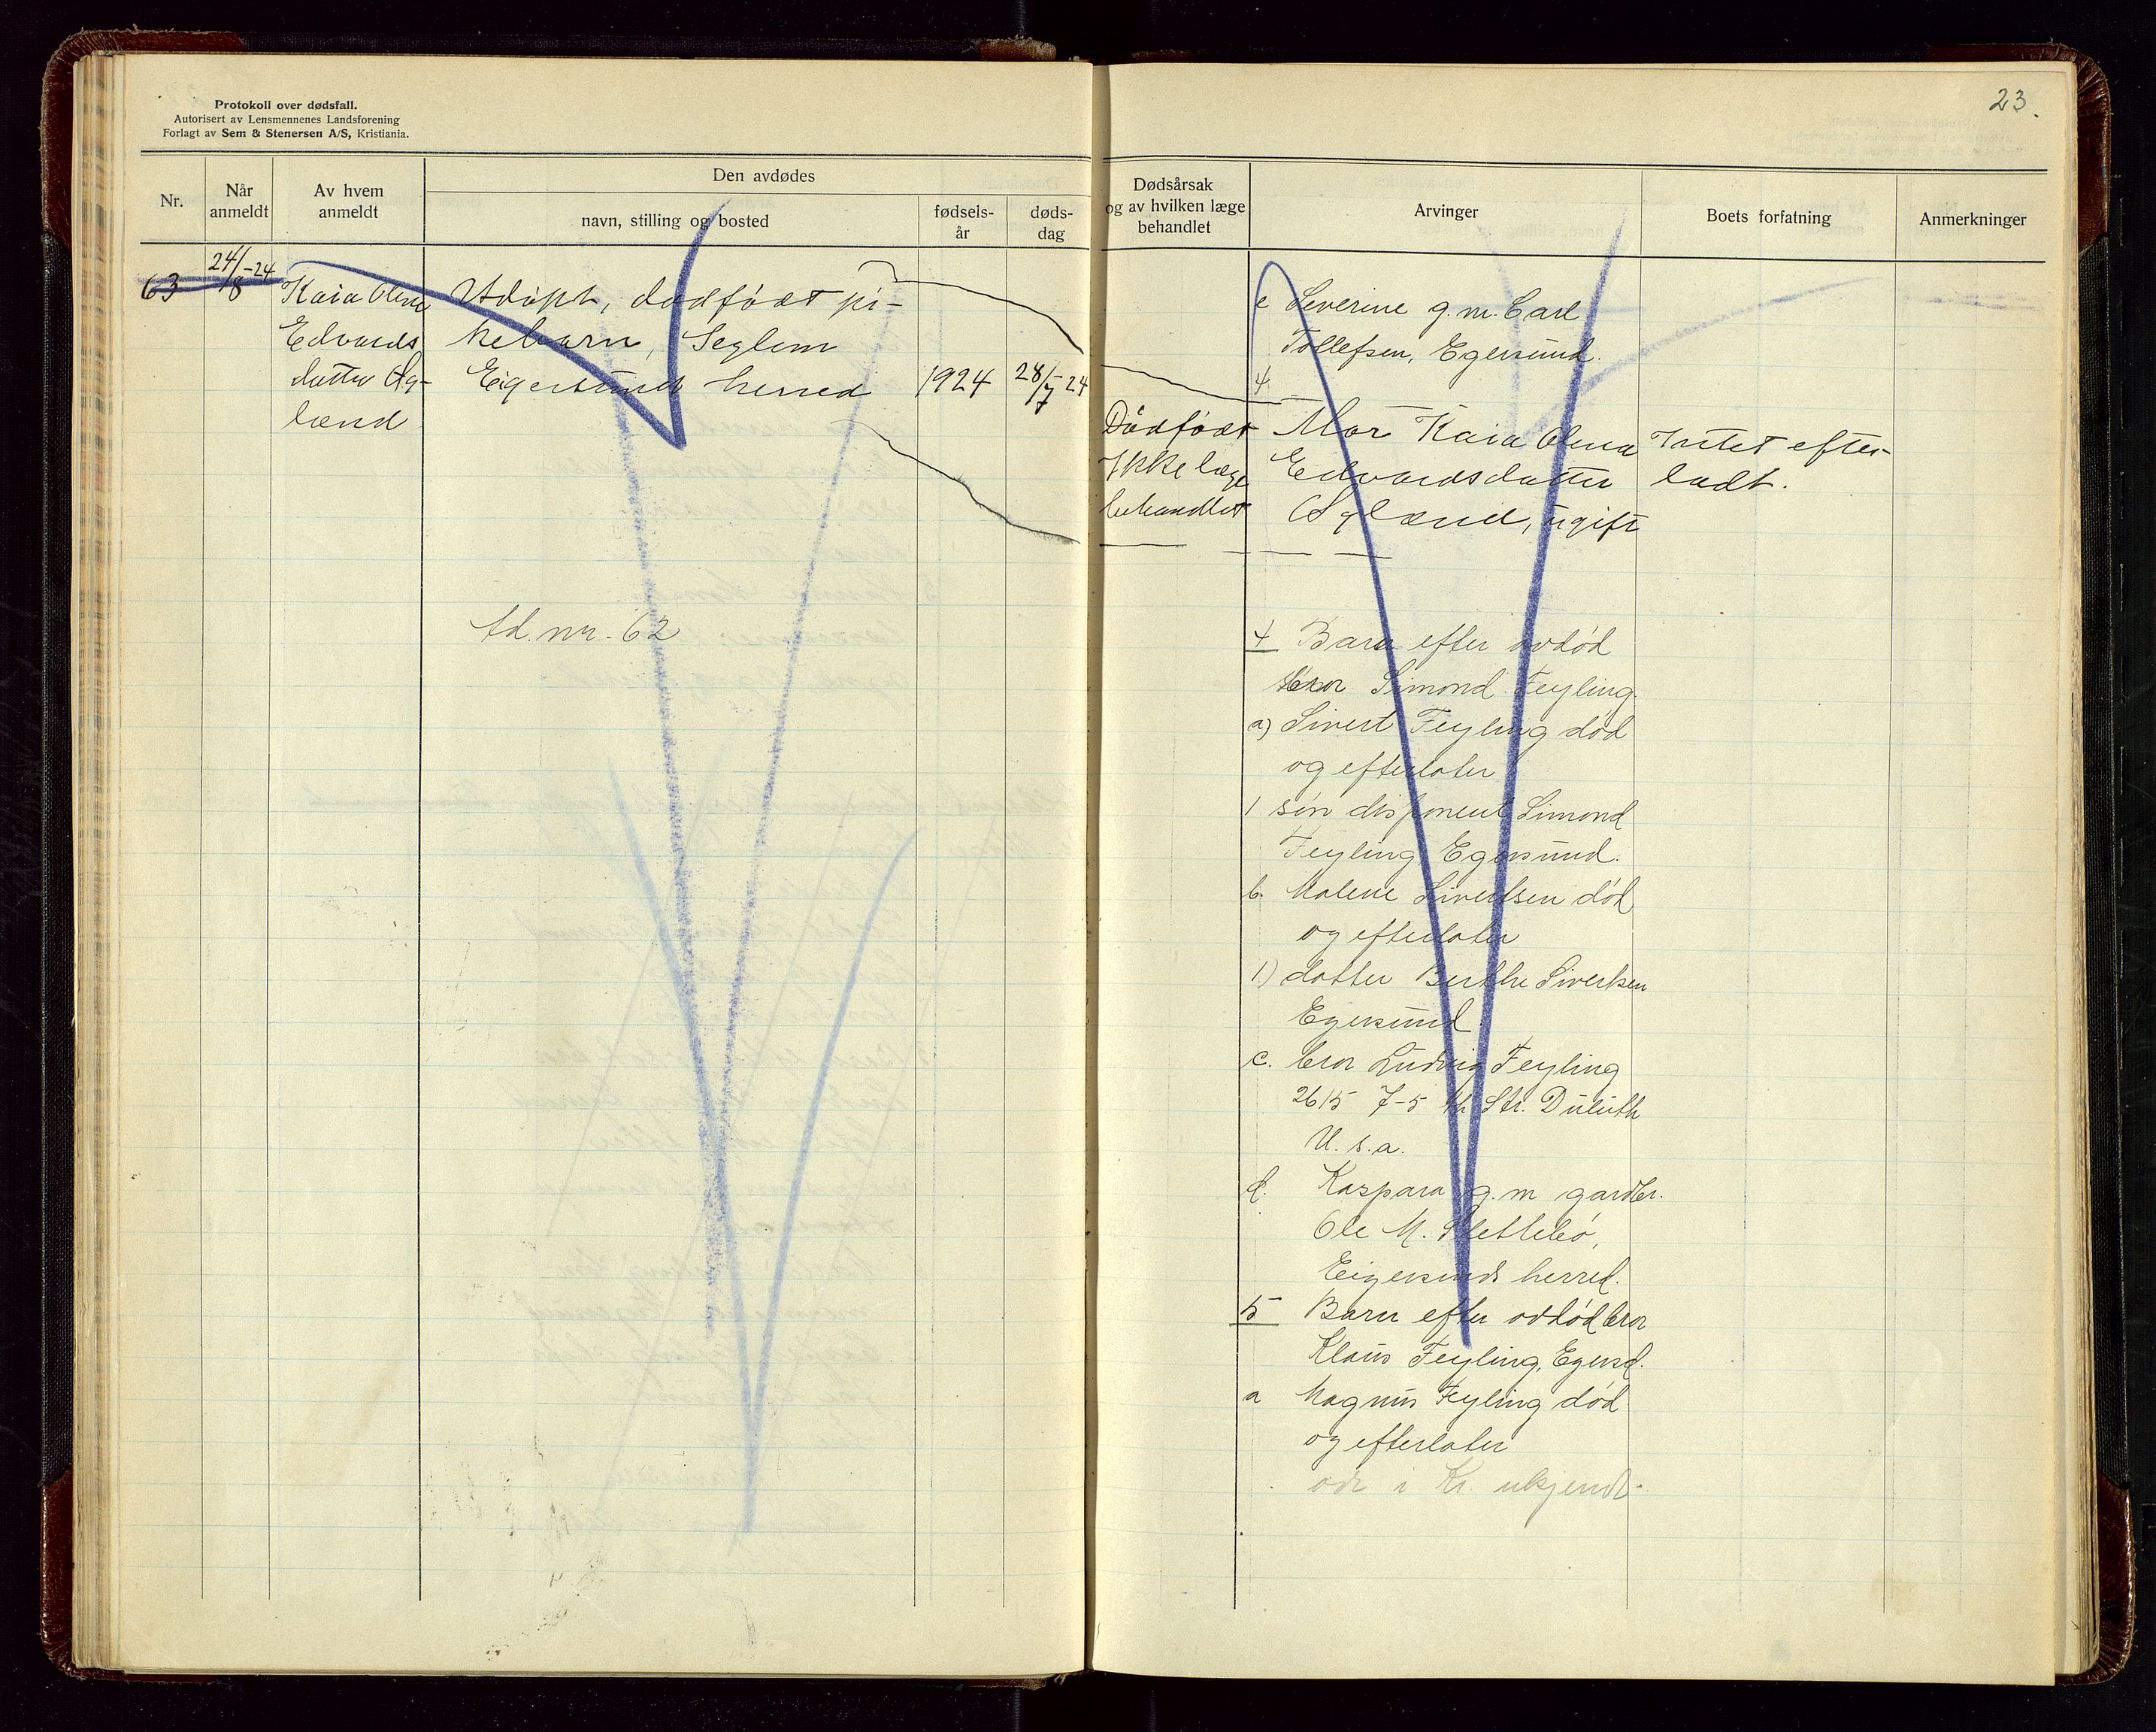 Protokoll over dødsfall.
Autorisert av Lensmennenes Landsforening
Forlagt av Sem & Stenersen A/S, Kristiania.
Nr.
Når anmeldt
Av hvem anmeldt
Den avdødes
navn, stilling og bosted
fødsels-år
døds-dag
63
24/8-24
Kaia Olena
Edvards
datter Eg-
land
Udøpt, dødfødt pi-
kebarn, Seglem
Eigersund herred
1924
28/7-24
td. nr. 62
23.
Dødsårsak
og av hvilken læge
behandlet
Arvinger
Boets forfatning
Anmerkninger
e Severine g.m. Carl
Tollefsen, Egersund.
4
Dødfødt
Ikke læge
behandlet
Mor Kaia Olena
Edvardsdatter
ugift
Intet efter-
ladt.
4 Barn efter avdød
bror Simond Feyling
a) Sivert Feyling død
og efterlater
1 søn disponent Simond
Feyling Egersund.
b. Malene Sivertsen død
og efterlater
1) datter Berthe Sivertsen
Egersund
c. bror Ludvig Feyling
2615 7-5 th Str. Duluth
U.s.a.
d. Kaspara g.m gardbr.
Ole M. Slettebø,
Eigersunds herred.
5 Barn efter avdød bror
Klaus Feyling, Egersd.
a Magnus Feyling død
og efterlater
adr i Kr. ukjendt.